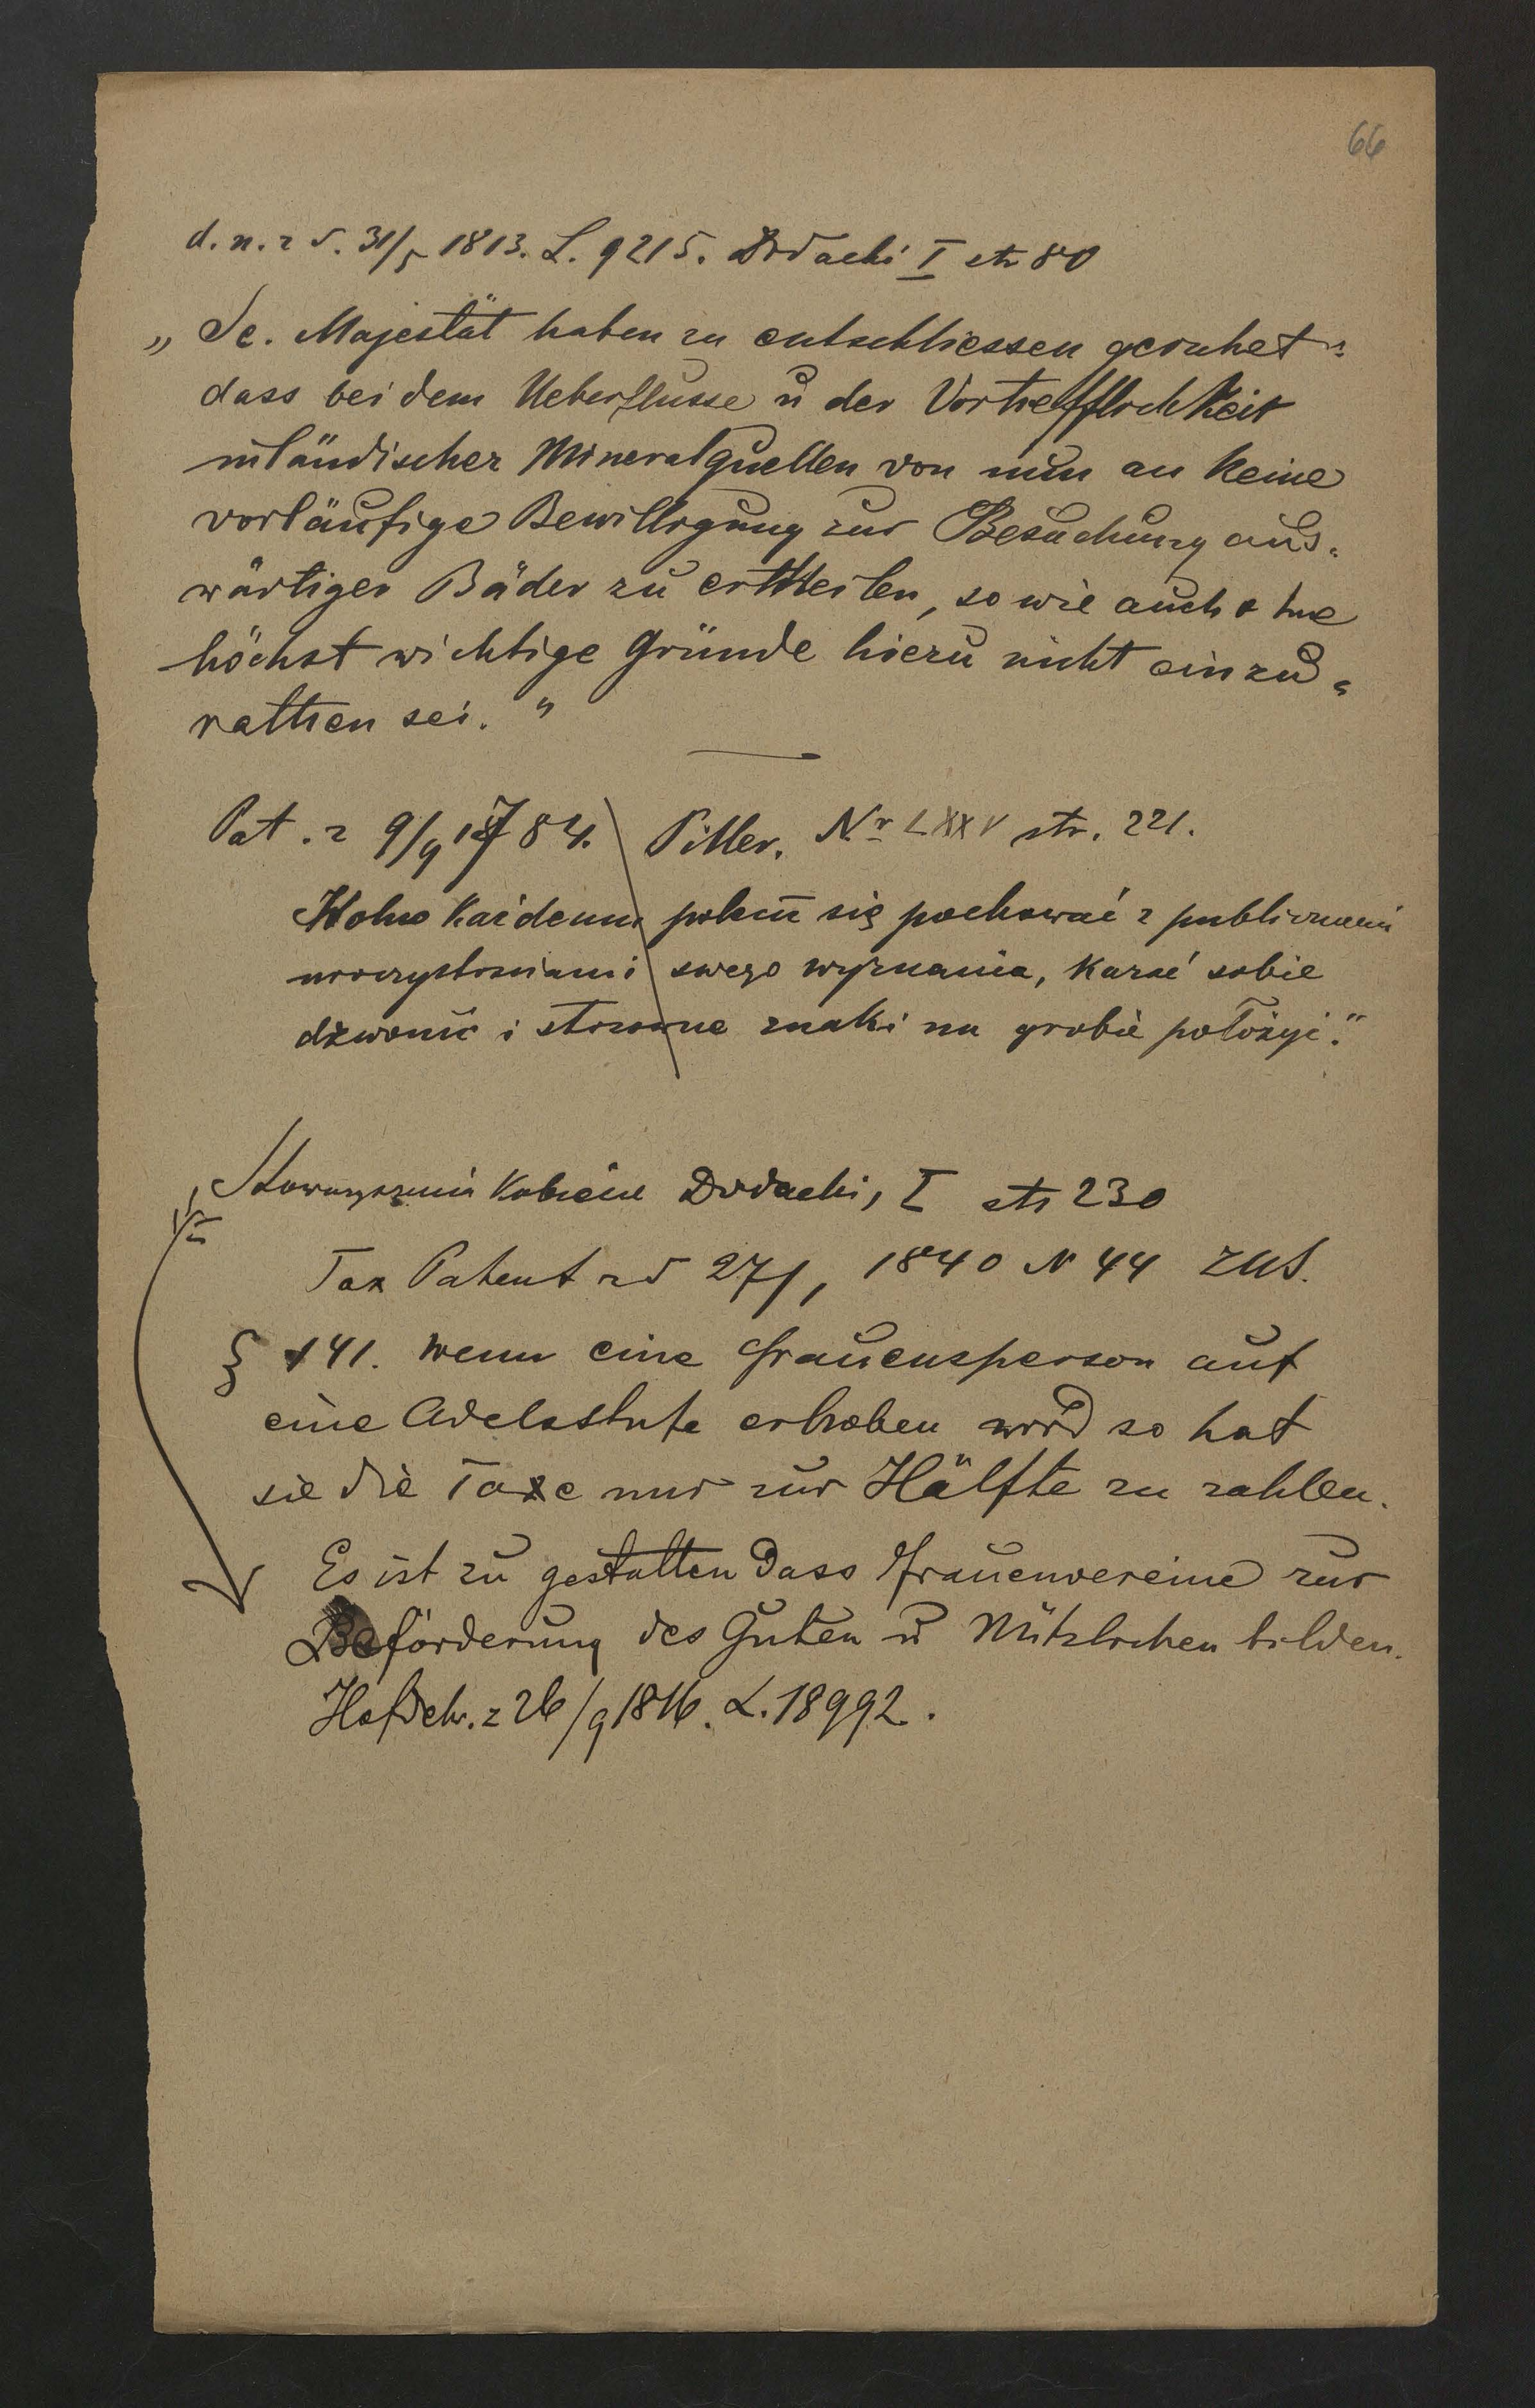 66
d. n. z d. 31/5 1813. L. 9215. Dodatki I str 80
„Se. Majestät haben zu entschliessen geruhet:
dass bei dem Ueberflusse u der Vortrefflichkeit
inländischer Mineralquellen von nun an keine
vorläufige Bewilligung zur Besuchung aus=
wärtiger Bäder zu ertheilen, so wie auch ohne
höchst wichtige Gründe hiezu nicht einzu=
rathen sei."
Pat. z 9/9 1784. Piller. Nr LXXV str. 221.
Wolno każdemu się pochować z publicznemi
uroczystościami swego wyznania, kazać sobie
dzwonić i stosowne znaki na grobie położyć."
Stowarzyszenia Kobiece Dodatki, I str 230
Tax Patent z d 27/1 1840 N 44 ZUS.
§ 141. wenn eine Frauensperson auf
eine Adelsstufe erhoben wird so hat
sie die Taxe nur zur Hälfte zu zahlen.
Es ist zu gestatten dass Frauenvereine zur
Beförderung des Guten u Nützlichen bilden.
Hofdek. z 26/9 1816. L. 18992.